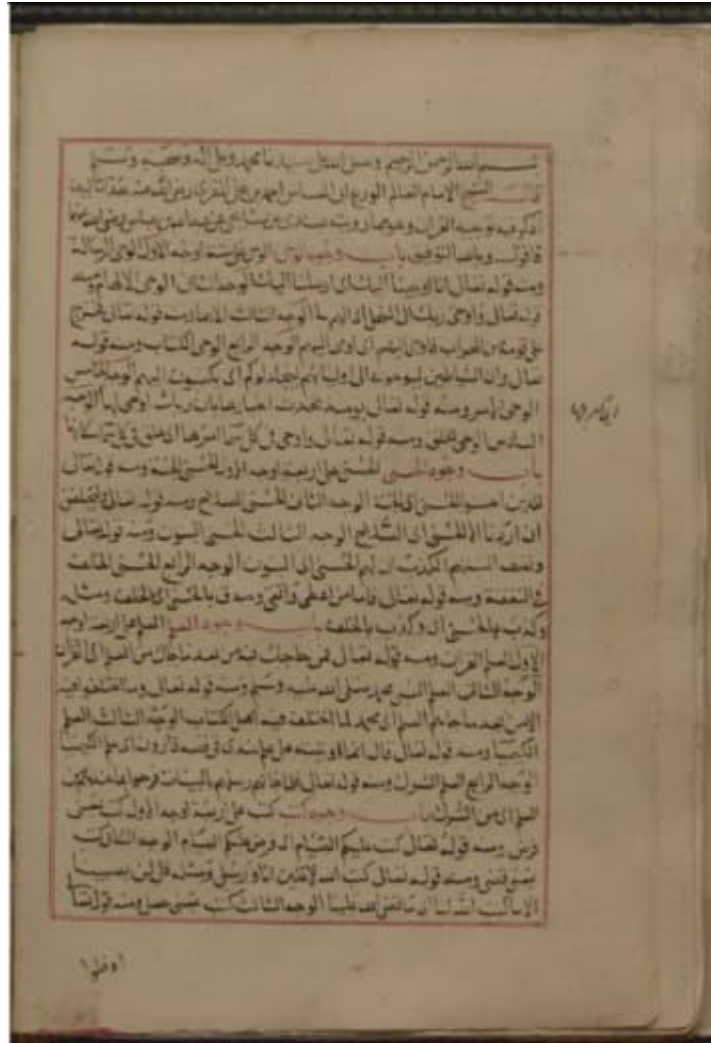 بسم الله الرحمن الرحيم وصلى الله على سيدنا محمد وعلى آله وصحبه وسلم
قال الشيخ الامام العالم الورع ابى العباس احمد بن على المقرى رضى الله عنه هذا
اذكر فيه توجيه القران وهو مما رويته عن ابن عباس رضى الله عنهما
فاقول وبالله التوفيق باب وجوه الوحى الوحى على ستة اوجه الاول الوحى الرسالة
ومنه قوله تعالى انا اوحينا اليك اى ارسلنا اليك الوجه الثانى الوحى الالهام ومنه
قوله تعالى واوحى ربك الى النحل اى الهمها الوجه الثالث الايما ومنه قوله تعالى فخرج
على قومه من المحراب فاوحى اليهم اى اومى اليهم الوجه الرابع الوحى الكتاب ومنه قوله
تعالى وان الشياطين ليوحون الى اوليائهم ليجادلوكم اى يكتبون اليهم الوجه الخامس
الوحى الامر ومنه قوله تعالى يومئذ تحدث اخبارها بان ربك اوحى لها الوجه
السادس الوحى الخلق ومنه قوله تعالى واوحى فى كل سما امرها اى خلق فى كل سما
باب وجوه الحسنى الحسنى على اربعة اوجه الاول الحسنى الجنة ومنه قوله تعالى
للذين احسنوا الحسنى اى الجنة الوجه الثانى الحسنى الصلاح ومنه قوله تعالى وليحلفن
ان اردنا الا الحسنى اى الصلاح الوجه الثالث الحسنى البنون ومنه قوله تعالى
وتصف السنتهم الكذب ان لهم الحسنى اى البنون الوجه الرابع الحسنى الخلف
فى النفقة ومنه قوله تعالى فاما من اعطى واتقى وصدق بالحسنى اى بالخلف ومثله
وكذب بالحسنى اى وكذب بالخلف باب وجوه العلم العلم على اربعة اوجه
الاول العلم القران ومنه قوله تعالى فمن حاجك فيه من بعد ما جاك من العلم اى القران
الوجه الثانى العلم النبى محمد صلى الله عليه وسلم ومنه قوله تعالى وما اختلفوا فيه
الا من بعد ما جاهم العلم اى محمد لما اختلف فيه اهل الكتاب الوجه الثالث العلم
الكيميا ومنه قوله تعالى قال انما اوتيته على علم عندى فى قصة قارون اى علم الكيميا
الوجه الرابع العلم الشرك ومنه قوله تعالى فلما جاتهم رسلهم بالبينات فرحوا بما عندهم من
العلم اى من الشرك باب وجوه كتب كتب على اربعة اوجه الاول كتب بمعنى
فرض ومنه قوله تعالى كتب عليكم الصيام اى فرض عليكم الصيام الوجه الثانى كتب
بمعنى قضى ومنه قوله تعالى كتب الله لاغلبن انا ورسلى ومثله قل لن يصيبنا
الا ما كتب الله لنا اى ما قضى الله علينا الوجه الثالث كتب بمعنى جعل ومنه قوله تعالى